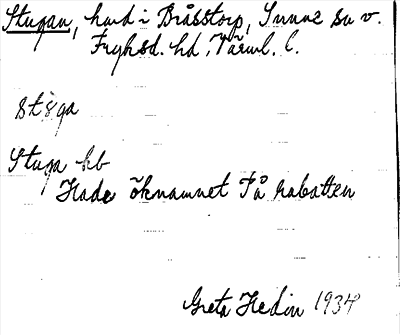 Stugan, hmd i Bråsstorp, Sunne sn v.
Fryksd. hd, Värml. l.
stɞga
Stuga hb
Hade öknamnet På rabatten
Greta Hedin 1934